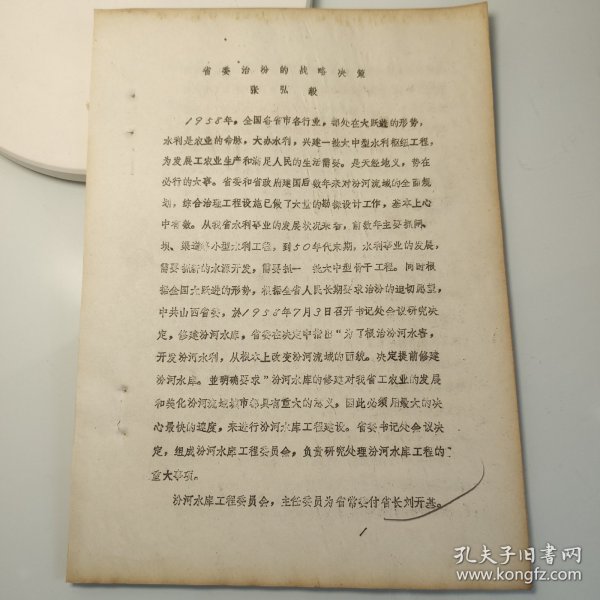 省委治汾的战略决策
张弘毅
1958年，全国各省市各行业，都处在大跃进的形势，
水利是农业的命脉，大办水利，兴建一批大中型水利枢纽工程，
为发展工农业生产和满足人民的生活需要。是天经地义，势在
必行的大事。省委和省政府建国后数年来对汾河流域的全面规
划，综合治理工程设施已做了大量的勘探设计工作，基本上心
中有数。从我省水利事业的发展状况来看，前数年主要抓闸、
坝、渠道等小型水利工程，到50年代末期，水利事业的发展，
需要抓新的水源开发，需要抓一 批大中型骨干工程。同时根
据全国大跃进的形势，根据全省人民长期要求治汾的迫切愿望，
中共山西省委，於1958年7月3日召开书记处会议研究决
定，修建汾河水库，省委在决定中指出“为了根治汾河水害，
开发汾河水利，从根本上改变汾河流域的面貌。决定提前修建
汾河水库。並明确要求”汾河水库的修建对我省工农业的发展
和美化汾河流域城市都具有重大的意义，因此必须用最大的决
心最快的速度，来进行汾河水库工程建设。省委书记处会议决
定，组成汾河水库工程委员会，负责研究处理汾河水库工程的
重大事项。
汾河水库工程委员会，主任委员为省常委付省长刘开基。
1
孔夫子旧书网
www.kongfz.com